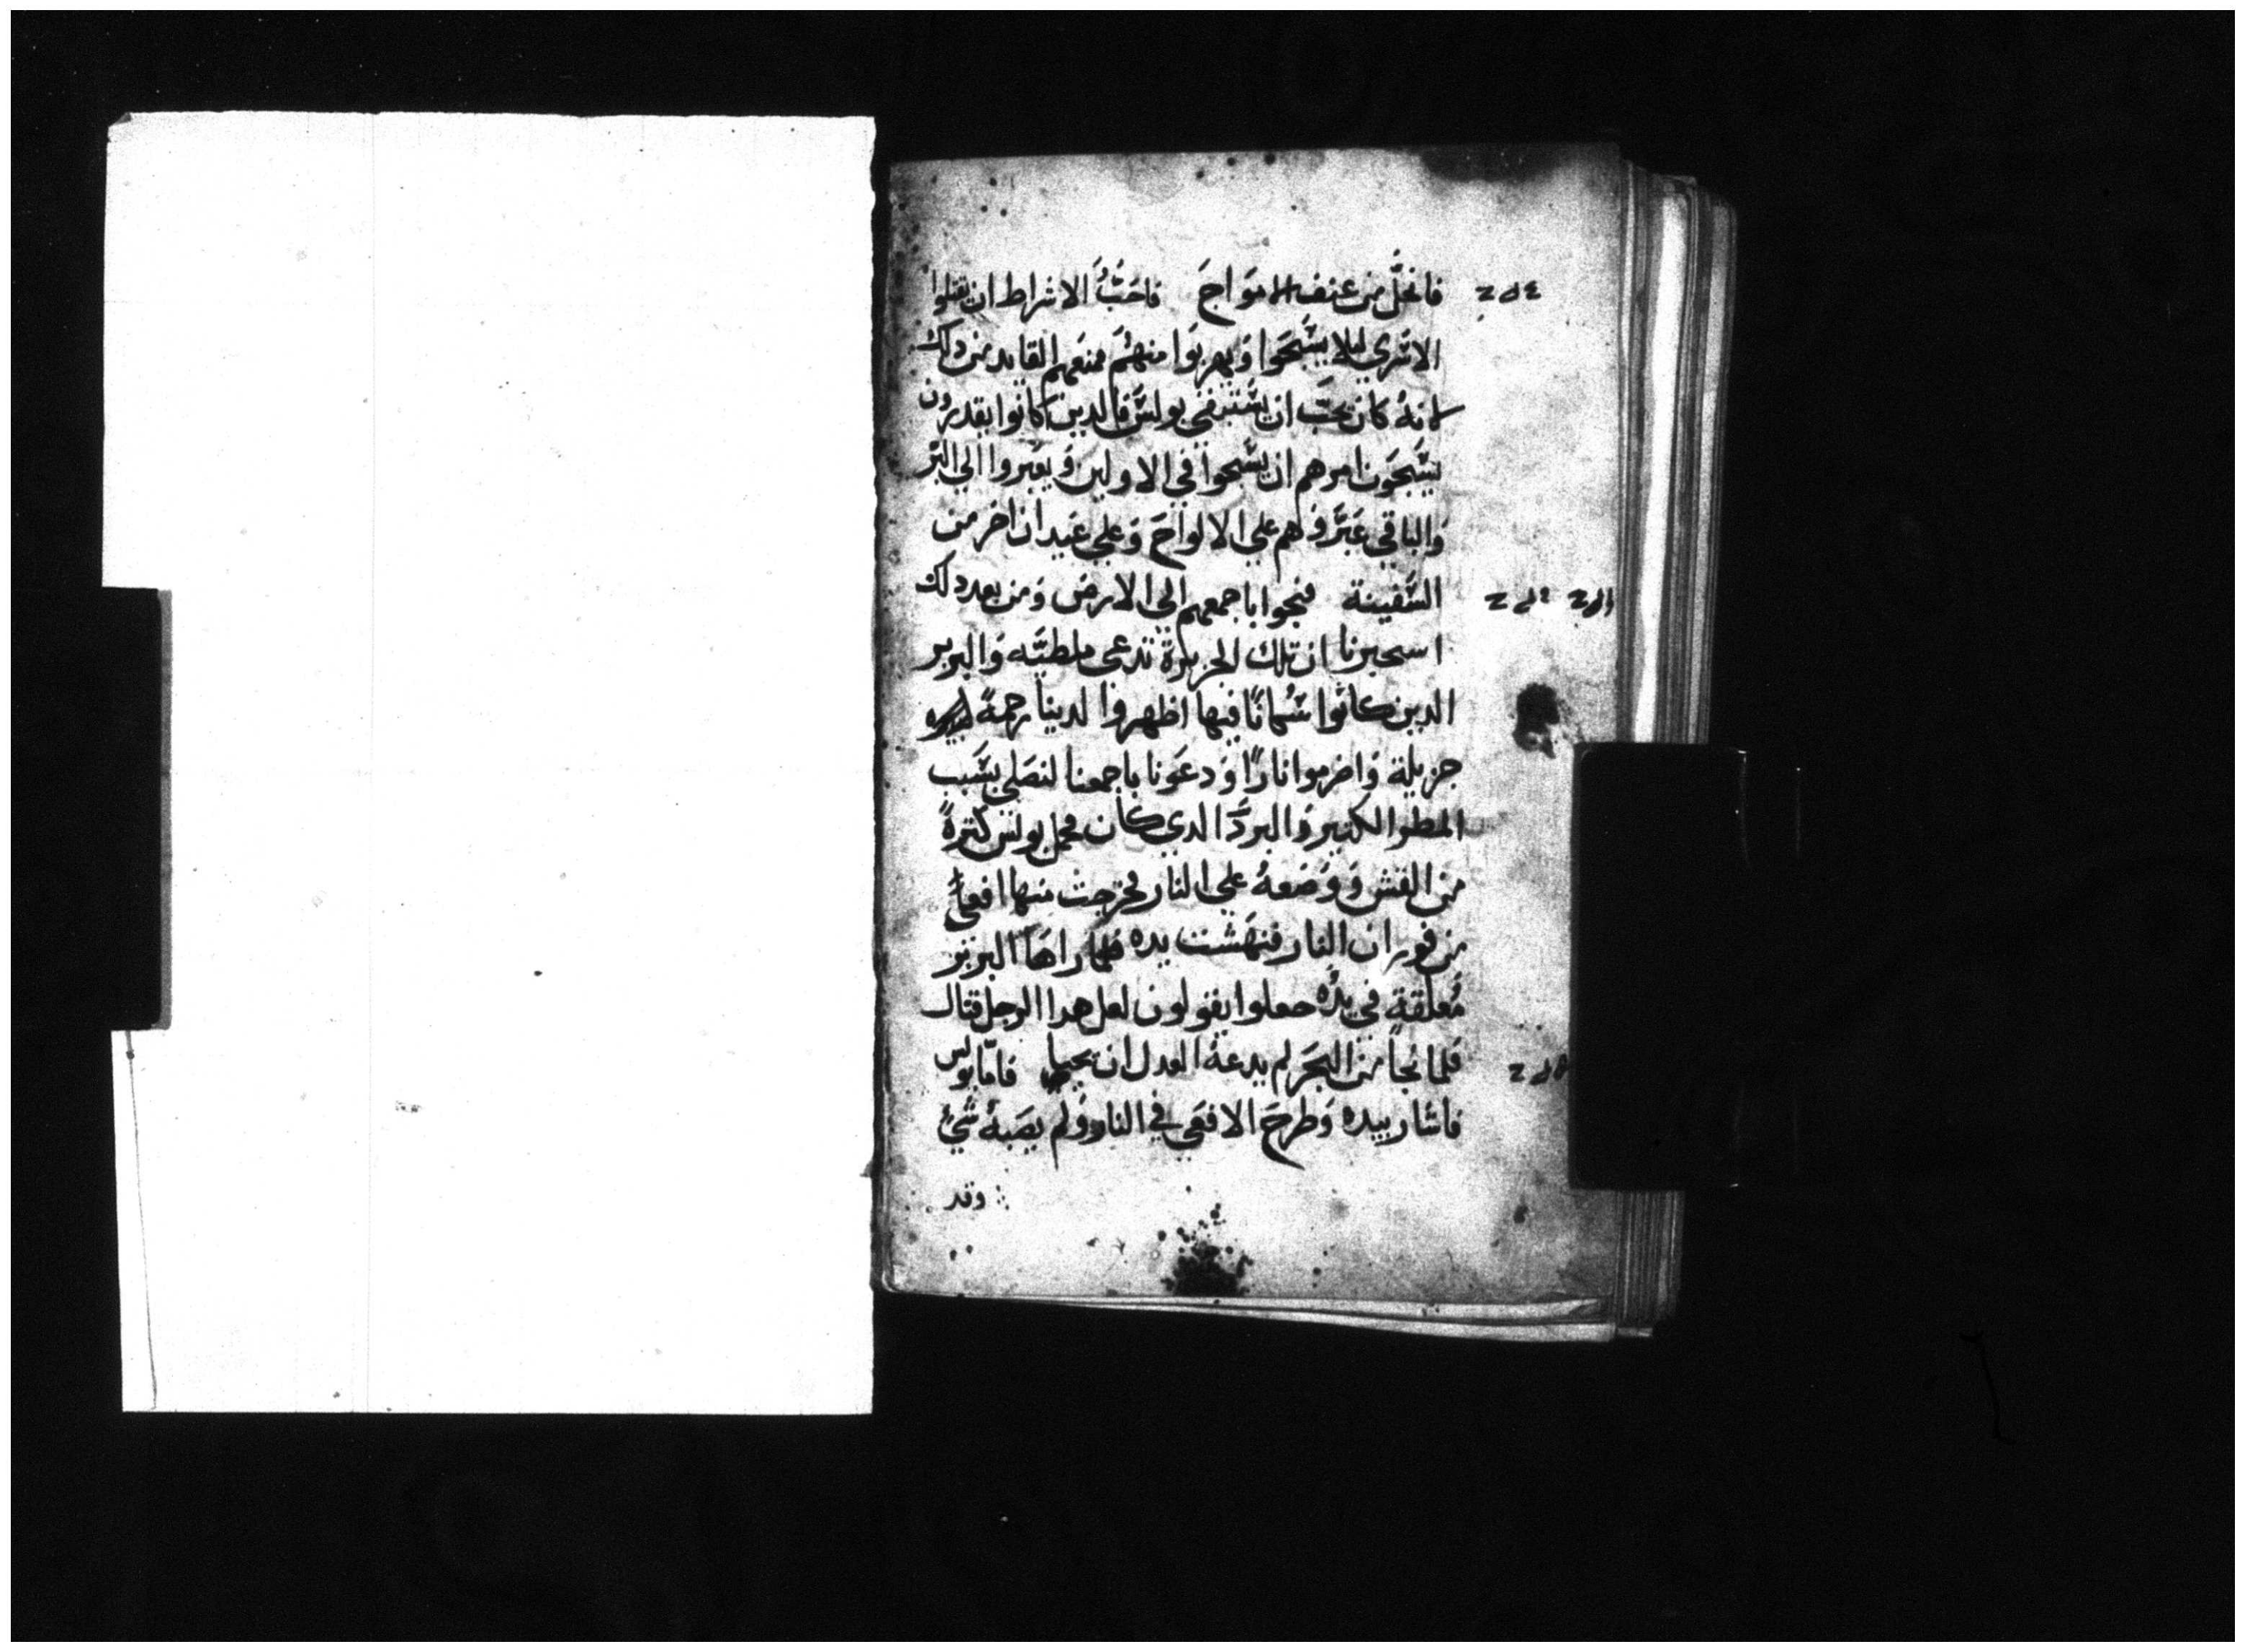 فانحَلَّ من عنف الامَواجَ فاحَبَّ الاشراط ان يقتلوا
الاسَري ليلا يسَّبحَوا وَيهربوَا منهُمَ فمنعَهم القايد من دلك
لانهُ كان يحَبَّ ان يسَّتبقي بولسَّ فالدين كانوا يقدرون
يسَّبحَون امرهم ان يسَّبحوا في الاولين وَيعَبروا الي البَّر
وَالباقي عَبَّرَوهم علي الالواحَ وَعلي عَيدان اخر من
السَّفينة فنجوا باجمعهم الي الارض وَمن بعد دلك
اسحبرنا ان تلك الجزيرة تدعى ملطيَّه وَالبربر
الدين كانوا سَّكانًا فيها اظهروا لدينا رحمةً
جزيلة وَاضرموا نارًا وَدعَونا باجمعنا لنصَلي بسَّبب
المطر الكتير وَالبردَّ الدي كان فحمل بولسَّ كترةً
من القش وَوَضعهُ علي النار فخرجت منها افعاً
من فوران النار فنهَشت يده فلما راهَا البربر
مُعلقة في يدُه جعلوا يقولون لعل هدا الرجل قتال
فلما نجاً من البحَر لم يدعهُ العدل ان يحيا فامّا بولس
فاشار بيده وَطرحَ الافعَي في النار وَلم يصَبهُ شيُ
وقد